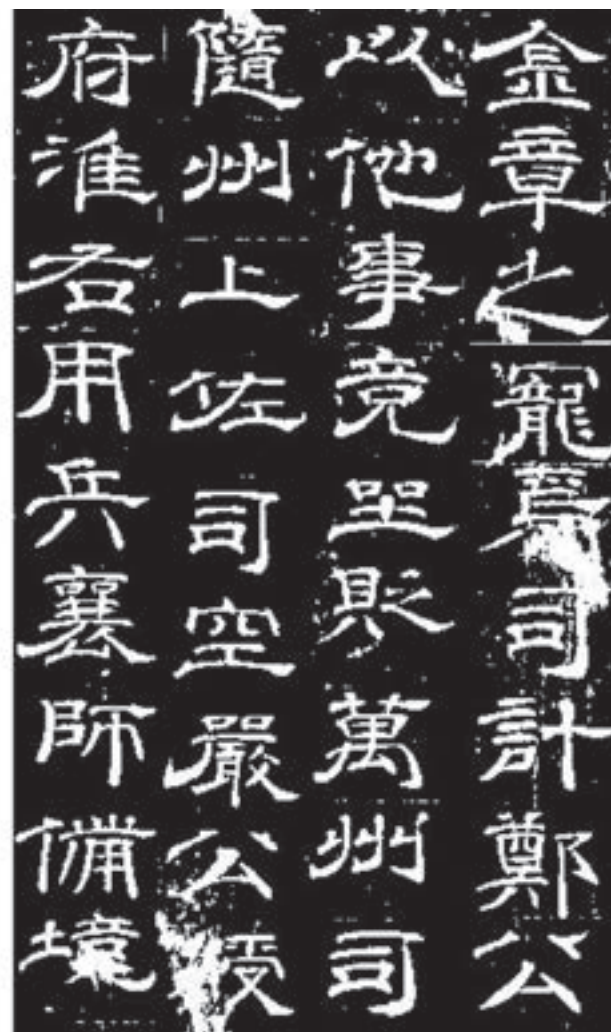 金章之寵司計鄭公
以他事竟坐貶萬州司
隨州上佐司空嚴公綬
府淮右用兵襄師備境